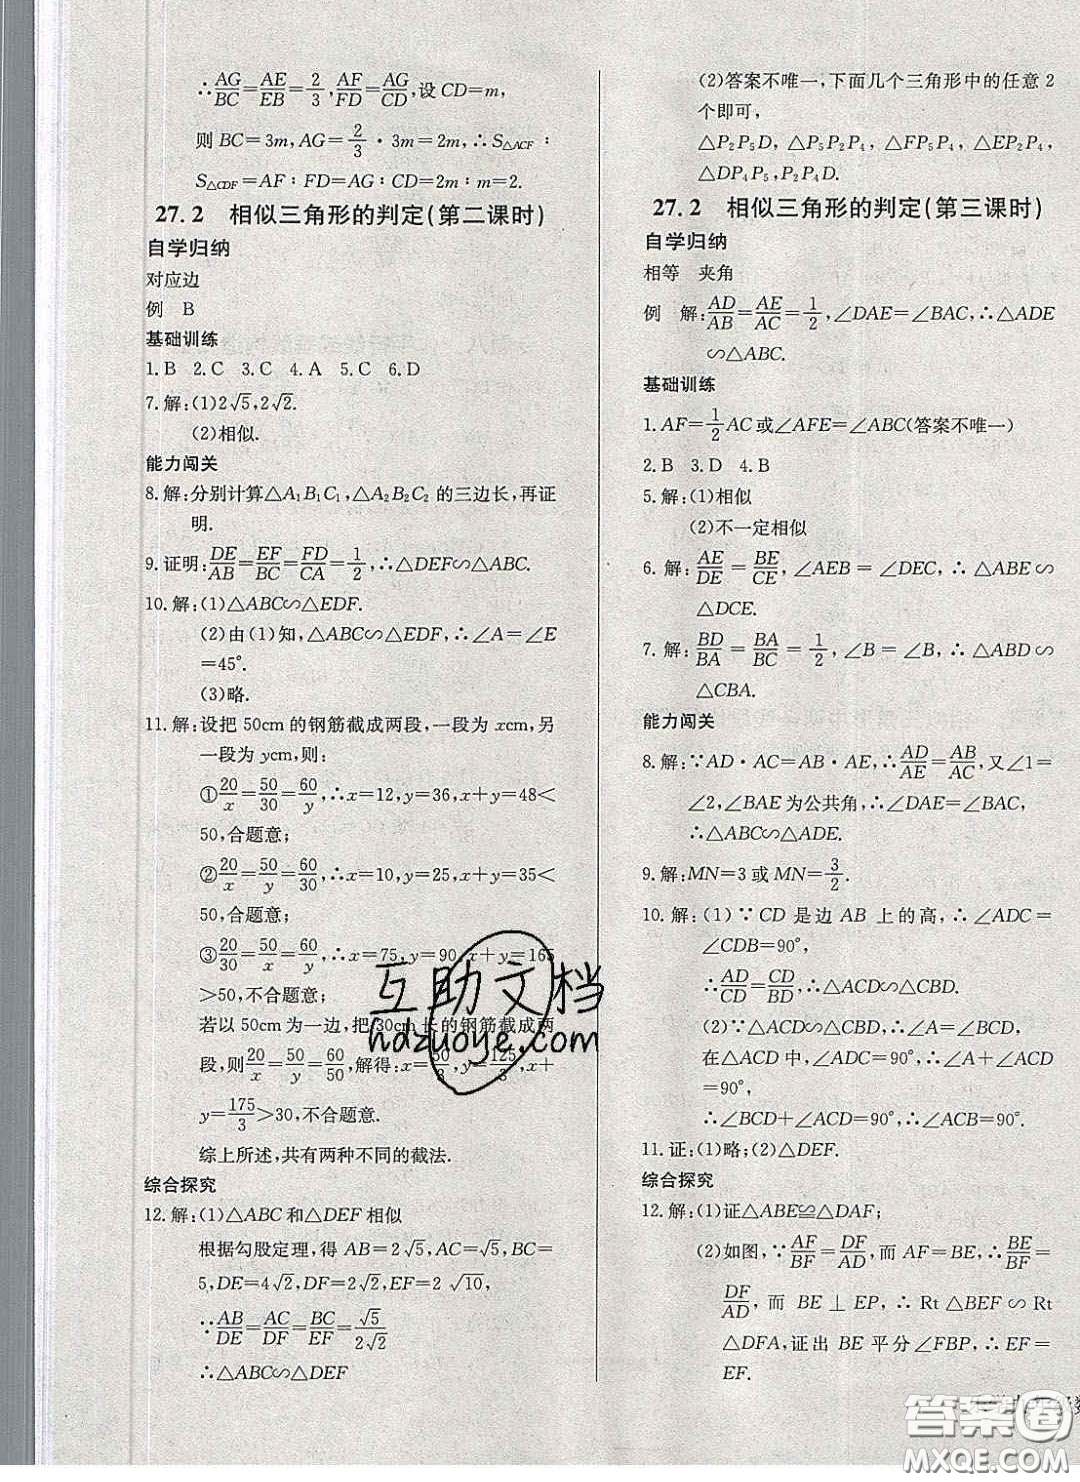 ∴AG/BC=AE/EB=2/3,AF/FD=AG/CD,设CD=m,
则BC=3m,AG=2/3·3m=2m,∴S△ACF∶
S△CDF=AF∶FD=AG∶CD=2m∶m=2.
27.2 相似三角形的判定(第二课时)
自学归纳
对应边
例 B
基础训练
1.B 2.C 3.C 4.A 5.C 6.D
7.解:(1)2√5,2√2.
(2)相似.
能力闯关
8.解:分别计算△A₁B₁C₁,△A₂B₂C₂的三边长,再证
明.
9.证明:DE/AB=EF/BC=FD/CA=1/2,∴△DEF∽△ABC.
10.解:(1)△ABC∽△EDF.
(2)由(1)知,△ABC∽△EDF,∴∠A=∠E
=45°.
(3)略.
11.解:设把50cm的钢筋截成两段,一段为xcm,另
一段为ycm,则:
①20/x=50/30=60/y,∴x=12,y=36,x+y=48<
50,合题意;
②20/x=50/y=60/30,∴x=10,y=25,x+y=35<
50,合题意;
③20/30=50/x=60/y,∴x=75,y=90,x+y=165
>50,不合题意.
若以50cm为一边,把30cm长的钢筋截成两
段,则20/x=50/y=60/50,解得:x=50/3,y=125/3,x+
y=175/3>30,不合题意.
综上所述,共有两种不同的截法.
综合探究
12.解:(1)△ABC和△DEF相似
根据勾股定理,得AB=2√5,AC=√5,BC=
5,DE=4√2,DF=2√2,EF=2√10,
∵AB/DE=AC/DF=BC/EF=√5/2√2
∴△ABC∽△DEF
(2)答案不唯一,下面几个三角形中的任意2
个即可,
△P₂P₅D,△P₅P₂P₂,△FP₅P₂,△EP₂P
△DP₄P₅,P₂P₄D.
27.2 相似三角形的判定(第三课时)
自学归纳
相等 夹角
例 解:AD/AB=AE/AC=1/2,∠DAE=∠EAC,∴△ADE
∽△ABC.
基础训练
1.AF=1/2AC或∠AFE=∠ABC(答案不唯一)
2.B 3.D 4.B
5.解:(1)相似
(2)不一定相似
6.解:AE/DE=BE/CE,∠AEB=∠DEC,∴△ABE∽
△DCE.
7.解:BD/BA=BA/BC=1/2,∠B=∠B,∴△ABD∽
△CBA.
能力闯关
8.解:∵AD·AC=AB·AE,∴AD/AE=AB/AC,又∠1=
∠2,∠BAE为公共角,∴∠DAE=∠BAC,
∴△ABC∽△ADE.
9.解:MN=3或MN=3/2.
10.解:(1)∵CD是边AB上的高,∴∠ADC=
∠CDB=90°,
∴AD/CD=CD/BD,∴△ACD∽△CBD.
(2)∵△ACD∽△CBD,∴∠A=∠BCD,
在△ACD中,∠ADC=90°,∴∠A+∠ACD
=90°,
∴∠BCD+∠ACD=90°,∴∠ACB=90°.
11.证:(1)略;(2)△DEF.
综合探究
12.解:(1)证△ABE≌△DAF;
(2)如图,∵AF/BF=DF/AD,而AF=BE,∴BE/BF=
DF/AD,而BE⊥EP,∴Rt△BEF∽Rt
△DFA,证出BE平分∠FBP,∴EF=
EF.
互助文档
hdzuoye.com
答案圈
MXQE.COM